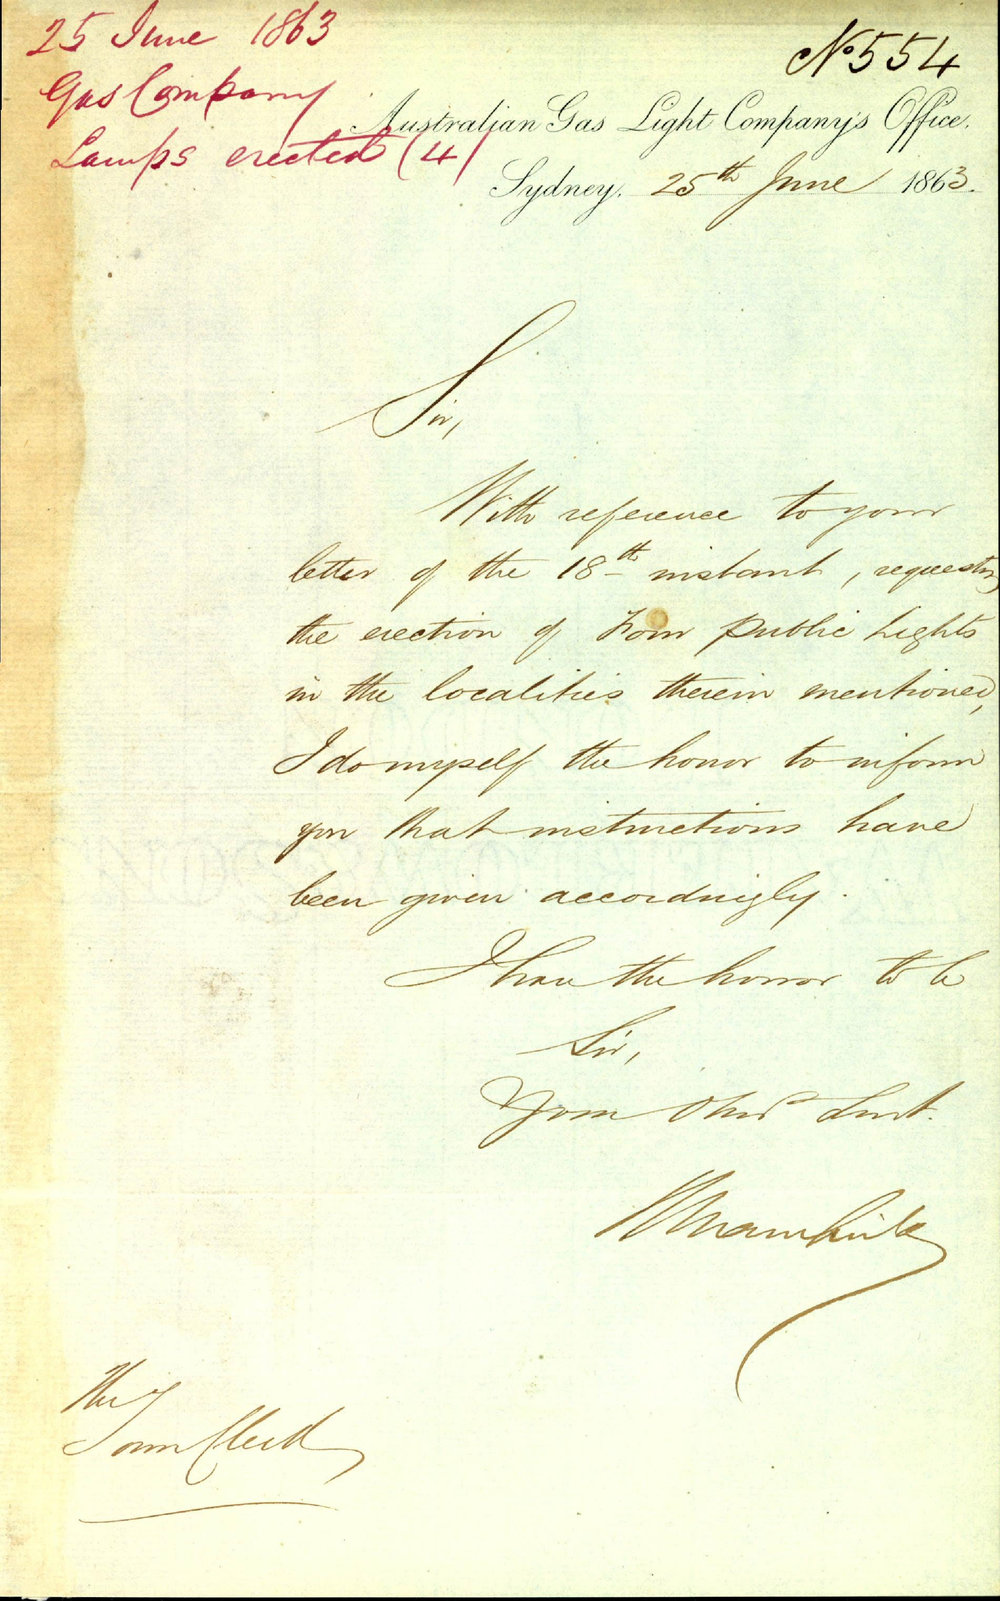 25 June 1863
Gas Company
Lamps erected (4)
No 554
Australian Gas Light Company's Office.
Sydney, 25th June 1863.
Sir,
With reference to your
letter of the 18th instant, requesting
the erection of Four public Lights
in the localities therein mentioned,
I do myself the honor to inform
you that instructions have
been given accordingly.
I have the honor to be
Sir,
Your Obed Servt.
The
Town Clerk